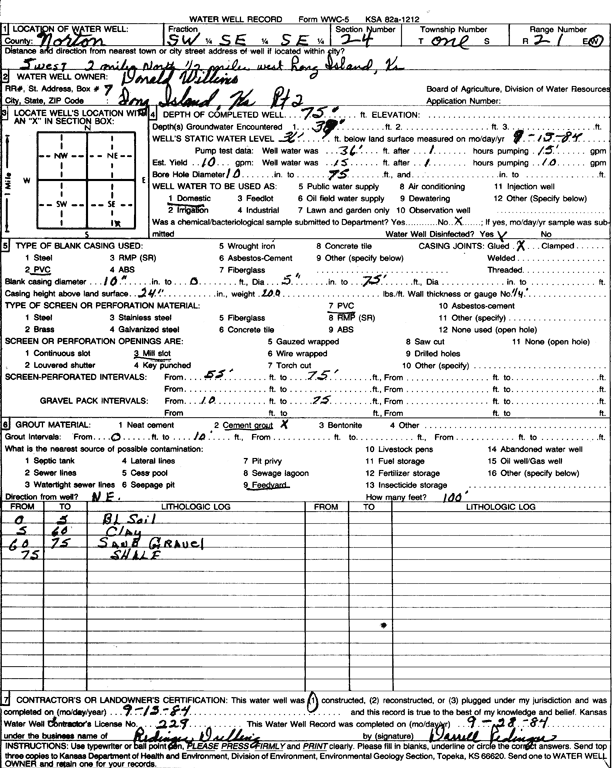 WATER WELL RECORD Form WWC-5 KSA 82a-1212
1 LOCATION OF WATER WELL: Fraction Section Number Township Number Range Number
County: Norton SW ¼ SE ¼ SE ¼ 24 T one S R 21 E(W)
Distance and direction from nearest town or city street address of well if located within city?
5 west 2 miles North 1/2 miles west Long Island, Ks
2 WATER WELL OWNER: Donald Willins
RR#, St. Address, Box # 7 Board of Agriculture, Division of Water Resources
City, State, ZIP Code : Long Island, Ks Rt 2 Application Number:
3 LOCATE WELL'S LOCATION WITH AN "X" IN SECTION BOX:
N
NW NE
W E
SW SE
X
S
1 Mile
4 DEPTH OF COMPLETED WELL 75' ft. ELEVATION:
Depth(s) Groundwater Encountered 1. ft. 2. ft. 3. ft.
WELL'S STATIC WATER LEVEL 36' ft. below land surface measured on mo/day/yr 9-15-84
Pump test data: Well water was 36' ft. after 1 hours pumping 15 gpm
Est. Yield 10 gpm: Well water was 15 ft. after 1 hours pumping 10 gpm
Bore Hole Diameter 10 in. to 75 ft., and in. to ft.
WELL WATER TO BE USED AS: 5 Public water supply 8 Air conditioning 11 Injection well
1 Domestic 3 Feedlot 6 Oil field water supply 9 Dewatering 12 Other (Specify below)
2 Irrigation 4 Industrial 7 Lawn and garden only 10 Observation well
Was a chemical/bacteriological sample submitted to Department? Yes No X ; If yes, mo/day/yr sample was sub-
mitted Water Well Disinfected? Yes X No
5 TYPE OF BLANK CASING USED: 5 Wrought iron 8 Concrete tile CASING JOINTS: Glued X Clamped
1 Steel 3 RMP (SR) 6 Asbestos-Cement 9 Other (specify below) Welded
2 PVC 4 ABS 7 Fiberglass Threaded.
Blank casing diameter 10" in. to 0 ft., Dia 5" in. to 75' ft., Dia in. to ft.
Casing height above land surface 24" in., weight 200 lbs./ft. Wall thickness or gauge No. 1/4"
TYPE OF SCREEN OR PERFORATION MATERIAL: 7 PVC 10 Asbestos-cement
1 Steel 3 Stainless steel 5 Fiberglass 8 RMP (SR) 11 Other (specify)
2 Brass 4 Galvanized steel 6 Concrete tile 9 ABS 12 None used (open hole)
SCREEN OR PERFORATION OPENINGS ARE: 5 Gauzed wrapped 8 Saw cut 11 None (open hole)
1 Continuous slot 3 Mill slot 6 Wire wrapped 9 Drilled holes
2 Louvered shutter 4 Key punched 7 Torch cut 10 Other (specify)
SCREEN-PERFORATED INTERVALS: From 55' ft. to 75' ft., From ft. to ft.
From ft. to ft., From ft. to ft.
GRAVEL PACK INTERVALS: From 10 ft. to 75 ft., From ft. to ft.
From ft. to ft., From ft. to ft.
6 GROUT MATERIAL: 1 Neat cement 2 Cement grout X 3 Bentonite 4 Other
Grout Intervals: From 0 ft. to 10' ft., From ft. to ft., From ft. to ft.
What is the nearest source of possible contamination: 10 Livestock pens 14 Abandoned water well
1 Septic tank 4 Lateral lines 7 Pit privy 11 Fuel storage 15 Oil well/Gas well
2 Sewer lines 5 Cess pool 8 Sewage lagoon 12 Fertilizer storage 16 Other (specify below)
3 Watertight sewer lines 6 Seepage pit 9 Feedyard 13 Insecticide storage
Direction from well? N.E. How many feet? 100'
FROM TO LITHOLOGIC LOG FROM TO LITHOLOGIC LOG
0 5 BL Soil
5 60 CLAY
60 75 SAND GRAVEL
75 SHALE
7 CONTRACTOR'S OR LANDOWNER'S CERTIFICATION: This water well was (1) constructed, (2) reconstructed, or (3) plugged under my jurisdiction and was
completed on (mo/day/year) 9-15-84 and this record is true to the best of my knowledge and belief. Kansas
Water Well Contractor's License No. 229 This Water Well Record was completed on (mo/day/yr) 9-28-84
under the business name of Redinger Drilling by (signature) Darrell Redinger
INSTRUCTIONS: Use typewriter or ball point pen, PLEASE PRESS FIRMLY and PRINT clearly. Please fill in blanks, underline or circle the correct answers. Send top
three copies to Kansas Department of Health and Environment, Division of Environment, Environmental Geology Section, Topeka, KS 66620. Send one to WATER WELL
OWNER and retain one for your records.